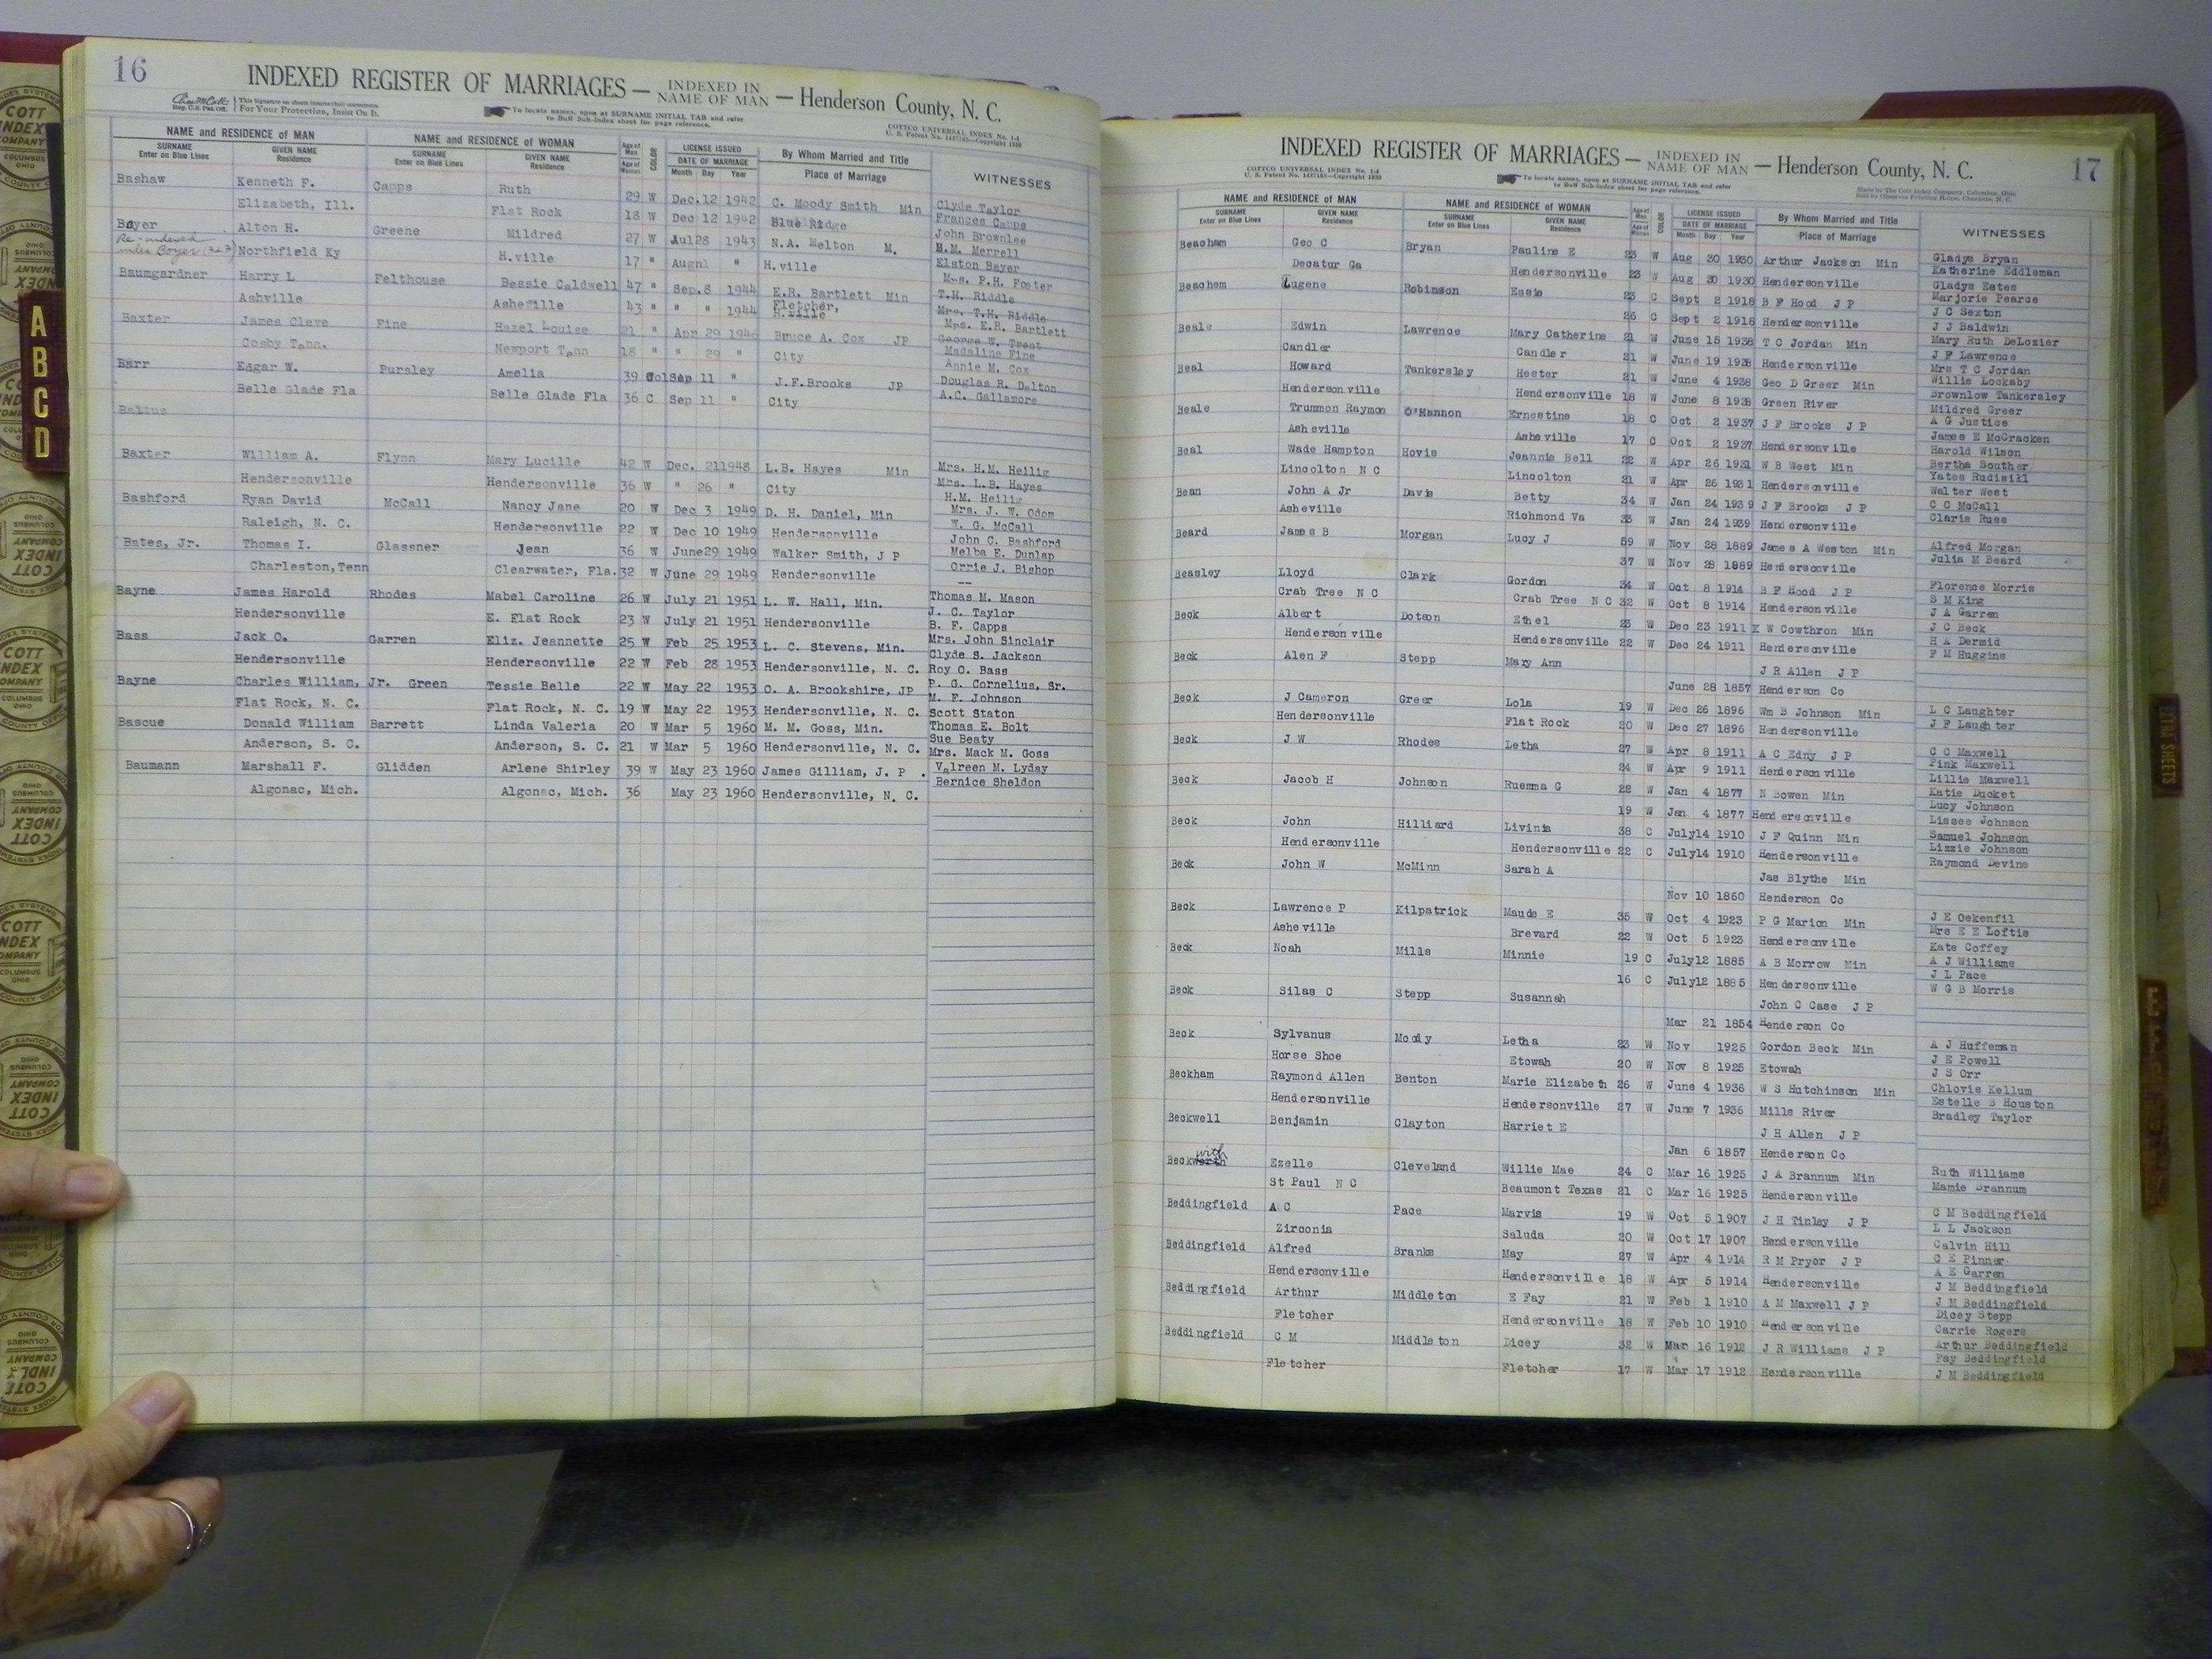 16
INDEXED REGISTER OF MARRIAGES — INDEXED IN NAME OF MAN — Henderson County, N. C.
This Signature on sheets insures their correctness.
For Your Protection, Insist On It.
To locate names, open at SURNAME INITIAL TAB and refer to Buff Sub-Index sheet for page reference.
COTTCO UNIVERSAL INDEX No. 1-4
NAME and RESIDENCE of MAN NAME and RESIDENCE of WOMAN Age of Man COLOR LICENSE ISSUED By Whom Married and Title WITNESSES
SURNAME Enter on Blue Lines GIVEN NAME Residence SURNAME Enter on Blue Lines GIVEN NAME Residence Age of Woman DATE OF MARRIAGE Month Day Year Place of Marriage
Bashaw Kenneth F. Capps Ruth 29 W Dec.12 1942 C. Moody Smith Min Clyde Taylor
Elizabeth, Ill. Flat Rock 18 W Dec 12 1942 Blue Ridge Frances Capps
John Brownlee
Bayer Alton H. Greene Mildred 27 W Jul28 1943 N.A. Melton M. H.M. Merrell
Re-indexed under Boyer
Northfield Ky H.ville 17 " Aug11 " H.ville Elston Bayer
Mrs. P.H. Foster
Baumgardner Harry L Felthouse Bessie Caldwell 47 " Sep.8 1944 E.R. Bartlett Min T.H. Riddle
Ashville Asheville 43 " " " 1944 Fletcher, H.ville Mrs. T.H. Riddle
Mrs. E.R. Bartlett
Baxter James Cleve Fine Hazel Louise 21 " Apr 29 1946 Bruce A. Cox JP George W. Treat
Cosby Tenn. Newport Tenn 18 " " 29 " City Madaline Fine
Annie M. Cox
Barr Edgar W. Pursley Amelia 39 Col Sep 11 " J.F.Brooks JP Douglas R. Dalton
Belle Glade Fla Belle Glade Fla 36 C Sep 11 " City A.C. Gallamore
Balius
Baxter William A. Flynn Mary Lucille 42 W Dec. 21 1948 L.B. Hayes Min Mrs. H.M. Heilig
Hendersonville Hendersonville 36 W " 26 " City Mrs. L.B. Hayes
H.M. Heilig
Bashford Ryan David McCall Nancy Jane 20 W Dec 3 1949 D. H. Daniel, Min Mrs. J. W. Odom
W. G. McCall
Raleigh, N. C. Hendersonville 22 W Dec 10 1949 Hendersonville John C. Bashford
Bates, Jr. Thomas I. Glassner Jean 36 W June29 1949 Walker Smith, J P Melba E. Dunlap
Charleston,Tenn Clearwater, Fla. 32 W June 29 1949 Hendersonville Orrie J. Bishop
--
Bayne James Harold Rhodes Mabel Caroline 26 W July 21 1951 L. W. Hall, Min. Thomas M. Mason
J. C. Taylor
Hendersonville E. Flat Rock 23 W July 21 1951 Hendersonville B. F. Capps
Bass Jack O. Garren Eliz. Jeannette 25 W Feb 25 1953 L. C. Stevens, Min. Mrs. John Sinclair
Clyde S. Jackson
Hendersonville Hendersonville 22 W Feb 28 1953 Hendersonville, N. C. Roy O. Bass
Bayne Charles William, Jr. Green Tessie Belle 22 W May 22 1953 O. A. Brookshire, JP P. G. Cornelius, Sr.
M. F. Johnson
Flat Rock, N. C. Flat Rock, N. C. 19 W May 22 1953 Hendersonville, N. C. Scott Staton
Bascue Donald William Barrett Linda Valeria 20 W Mar 5 1960 M. M. Goss, Min. Thomas E. Bolt
Sue Beaty
Anderson, S. C. Anderson, S. C. 21 W Mar 5 1960 Hendersonville, N. C. Mrs. Mack M. Goss
Baumann Marshall F. Glidden Arlene Shirley 39 W May 23 1960 James Gilliam, J. P . Valreen M. Lyday
Bernice Sheldon
Algonac, Mich. Algonac, Mich. 36 May 23 1960 Hendersonville, N. C.
A
B
C
D
17
INDEXED REGISTER OF MARRIAGES — INDEXED IN NAME OF MAN — Henderson County, N. C.
COTTCO UNIVERSAL INDEX No. 1-4
To locate names, open at SURNAME INITIAL TAB and refer to Buff Sub-Index sheet for page reference.
Made by The Cott Index Company, Columbus, Ohio
Sold by Observer Printing House, Charlotte, N. C.
NAME and RESIDENCE of MAN NAME and RESIDENCE of WOMAN Age of Man COLOR LICENSE ISSUED By Whom Married and Title WITNESSES
SURNAME Enter on Blue Lines GIVEN NAME Residence SURNAME Enter on Blue Lines GIVEN NAME Residence Age of Woman DATE OF MARRIAGE Month Day Year Place of Marriage
Beacham Geo C Bryan Pauline E 23 W Aug 30 1930 Arthur Jackson Min Gladys Bryan
Katherine Eddleman
Decatur Ga Hendersonville 23 W Aug 30 1930 Hendersonville Gladys Estes
Beachem Eugene Robinson Essie 23 C Sept 2 1918 B F Hood J P Marjorie Pearce
J C Sexton
26 C Sept 2 1918 Hendersonville J J Baldwin
Beale Edwin Lawrence Mary Catherine 21 W June 15 1938 T C Jordan Min Mary Ruth DeLozier
J F Lawrence
Candler Candler 21 W June 19 1938 Hendersonville Mrs T C Jordan
Beal Howard Tankersley Hester 21 W June 4 1938 Geo D Greer Min Willie Lockaby
Brownlow Tankersley
Hendersonville Hendersonville 18 W June 8 1938 Green River Mildred Greer
Beale Trummon Raymon O'Hannon Ernestine 18 C Oct 2 1937 J F Brooks J P A G Justice
James E McCracken
Asheville Asheville 17 C Oct 2 1937 Hendersonville Harold Wilson
Beal Wade Hampton Hovis Jeannie Bell 22 W Apr 26 1931 W B West Min Bertha Souther
Yates Rudisill
Lincolton N C Lincolton 21 W Apr 26 1931 Hendersonville Walter West
Bean John A Jr Davis Betty 34 W Jan 24 1939 J F Brooks J P C C McCall
Claris Russ
Asheville Richmond Va 33 W Jan 24 1939 Hendersonville
Beard James B Morgan Lucy J 59 W Nov 28 1889 James A Weston Min Alfred Morgan
Julia M Beard
37 W Nov 28 1889 Hendersonville
Beasley Lloyd Clark Gordon 34 W Oct 8 1914 B F Hood J P Florence Morris
S M King
Crab Tree N C Crab Tree N C 32 W Oct 8 1914 Hendersonville J A Garren
Beck Albert Dotson Ethel 23 W Dec 23 1911 K W Cowthron Min J C Beck
H A Dermid
Hendersonville Hendersonville 22 W Dec 24 1911 Hendersonville F M Huggins
Beck Alen F Stepp Mary Ann J R Allen J P
June 28 1857 Henderson Co
Beck J Cameron Greer Lola 19 W Dec 26 1896 Wm B Johnson Min L C Laughter
J F Laughter
Hendersonville Flat Rock 20 W Dec 27 1896 Hendersonville
Beck J W Rhodes Letha 27 W Apr 8 1911 A C Edny J P C C Maxwell
Pink Maxwell
24 W Apr 9 1911 Hendersonville Lillie Maxwell
Beck Jacob H Johnson Ruemma G 22 W Jan 4 1877 N Bowen Min Katie Ducket
Lucy Johnson
19 W Jan 4 1877 Hendersonville Lissee Johnson
Beck John Hilliard Livinia 38 C July14 1910 J F Quinn Min Samuel Johnson
Lizzie Johnson
Hendersonville Hendersonville 22 C July14 1910 Hendersonville Raymond Devine
Beck John W McMinn Sarah A Jas Blythe Min
Nov 10 1860 Henderson Co
Beck Lawrence P Kilpatrick Maude E 35 W Oct 4 1923 P G Marion Min J E Oekenfil
Mrs E E Loftis
Asheville Brevard 22 W Oct 5 1923 Hendersonville Kate Coffey
Beck Noah Mills Minnie 19 C July12 1885 A B Morrow Min A J Williams
J L Pace
16 C July12 1885 Hendersonville W G B Morris
Beck Silas C Stepp Susannah John C Case J P
Mar 21 1854 Henderson Co
Beck Sylvanus Moody Letha 23 W Nov 1925 Gordon Beck Min A J Huffeman
J E Powell
Horse Shoe Etowah 20 W Nov 8 1925 Etowah J S Orr
Beckham Raymond Allen Benton Marie Elizabeth 26 W June 4 1936 W S Hutchinson Min Chlovis Kellum
Estelle B Houston
Hendersonville Hendersonville 27 W June 7 1936 Mills River Bradley Taylor
Beckwell Benjamin Clayton Harriet E J H Allen J P
Jan 6 1857 Henderson Co
with
Beckworth Ezelle Cleveland Willie Mae 24 C Mar 16 1925 J A Brannum Min Ruth Williams
Mamie Brannum
St Paul N C Beaumont Texas 21 C Mar 16 1925 Hendersonville
Beddingfield A C Pace Marvis 19 W Oct 5 1907 J H Tinley J P C M Beddingfield
L L Jackson
Zirconia Saluda 20 W Oct 17 1907 Hendersonville Calvin Hill
Beddingfield Alfred Branks May 27 W Apr 4 1914 R M Pryor J P C E Pinner
A E Garren
Hendersonville Hendersonville 18 W Apr 5 1914 Hendersonville J M Beddingfield
Beddingfield Arthur Middleton E Fay 21 W Feb 1 1910 A M Maxwell J P J M Beddingfield
Dicey Stepp
Fletcher Hendersonville 18 W Feb 10 1910 Hendersonville Carrie Rogers
Beddingfield C M Middleton Dicey 32 W Mar 16 1912 J R Williams J P Arthur Beddingfield
Fay Beddingfield
Fletcher Fletcher 17 W Mar 17 1912 Hendersonville J M Beddingfield
EXTRA SHEETS
COTT INDEX COMPANY COLUMBUS OHIO